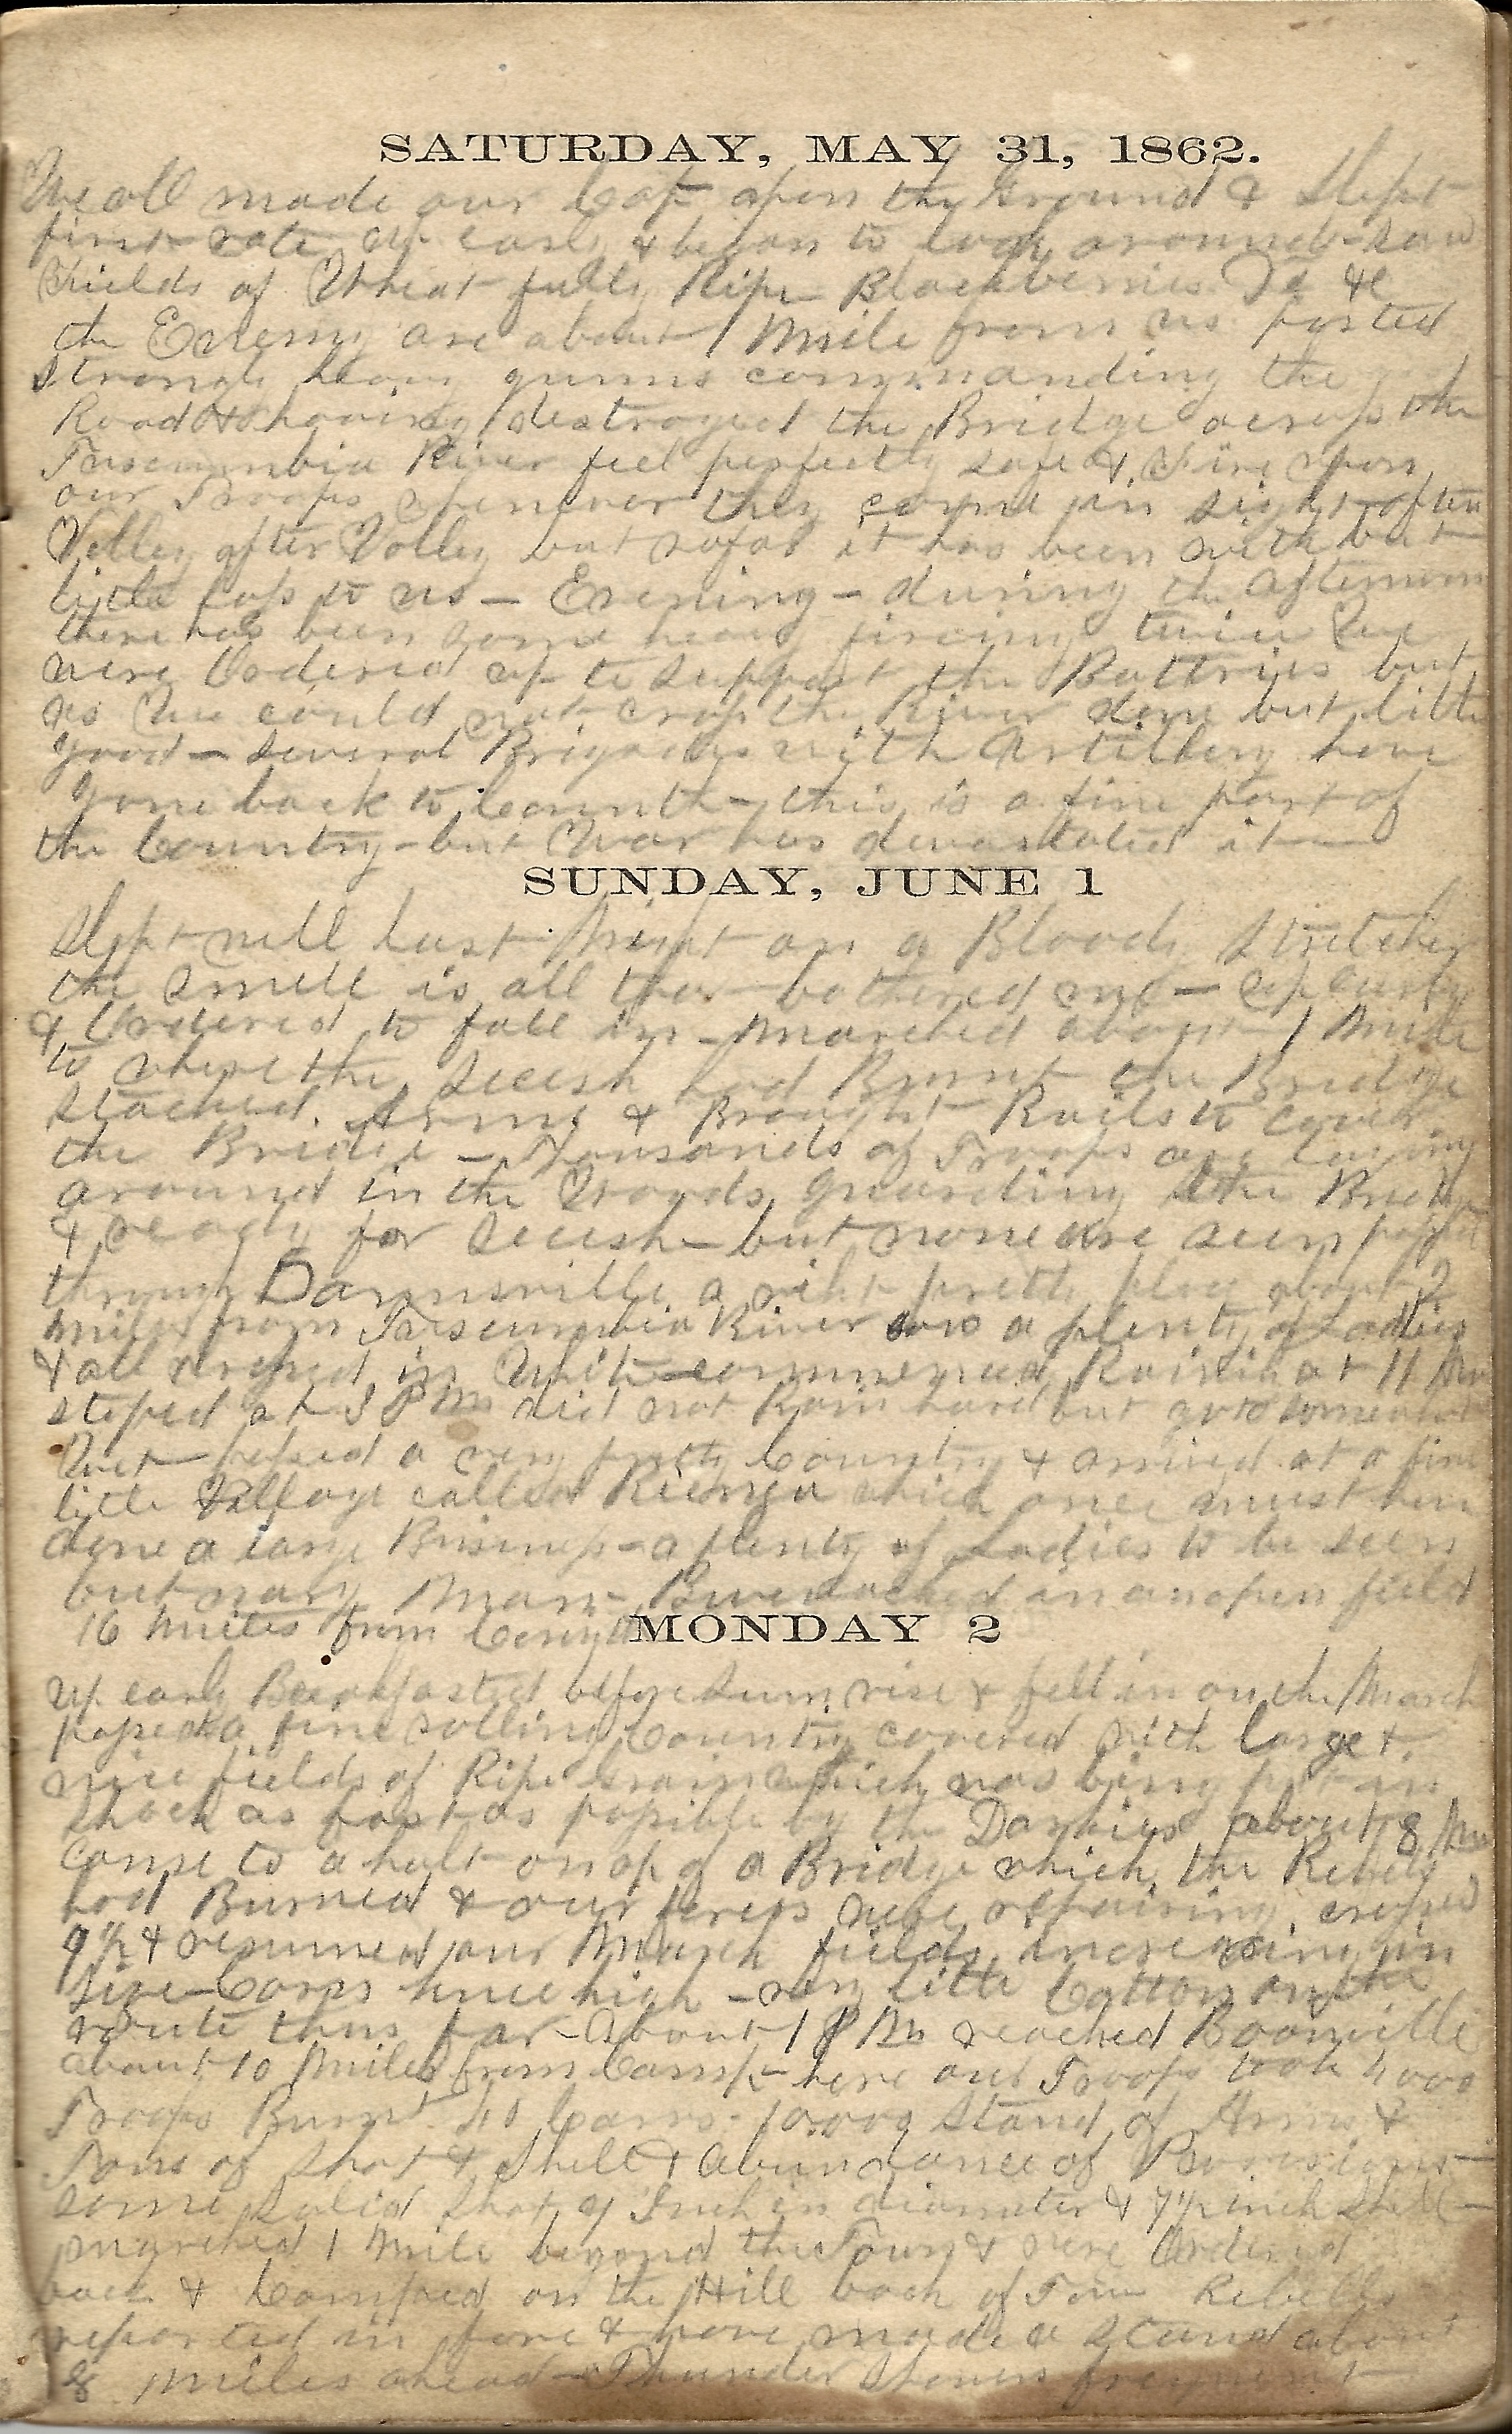 SATURDAY, MAY 31, 1862.
We all made our upon the Ground & Slept
first rate up early & began to look around - saw
Fields of Wheat fully Ripe Blackberries &c
the Enemy are about 1 Mile from us posted
strongly heavy guns commanding the
Road & having destroyed the Bridge across the
Tuscumbia River feel perfectly safe & Fire upon
our Troops whenever they come in sight often
Volley after Volley but so far it has been with but
little loss to us - Evening - during the afternoon
there has been some heavy firing twice We
were Ordered up to support the Battries but
as We could not cross the River done but little
good - Several Brigades with Artillery have
gone back to Corinth - this is a fine part of
the Country - but War has devastated it -
SUNDAY, JUNE 1
Slept well last Night on a Bloody Stretcher
the smell is all that bothered me - up early
& Ordered to fall in - Marched about 1 Mile
to where the Secesh had Burnt the Bridge
Stacked Arms & Brought Rails to cover
the Bridge - Thousands of Troops are laying
around in the Woods guarding the Bridge
& ready for Secesh - but none are seen passed
through a pretty place about 2
Miles from Tuscumbia River saw a plenty of Ladies
& all dressed in White - commenced Raining at 11 Am
stoped at 3 PM did not Rain hard but got somewhat
Wet - passed a very pretty Country & arrived at a fine
little Village called Rienza which once must have
done a large Business - a plenty of Ladies to be seen
but nary Man - Biverouacked in an open field
16 Miles from Corinth
MONDAY 2
up early Breakfasted before Sun rise & fell in on the March
passed a fine rolling Country covered with large &
nice fields of Ripe Grain which was being put in
shock as fast as possible by the Darkies about 8 Am
Come to a halt on ac of a Bridge which the Rebels
had Burned & our forces were repairing crossed
9 1/2 & resumed our March fields increasing in
size - Corn knee high - very little Cotton on the
route thus far - About 1 PM reached Boonville
about 10 Miles from Camp - here our Troops took
Troops Burnt Cars - 10.000 Stand of Arms &
Tons of Shot & Shell & Abundance of Provisions -
some Solid Shot 9 Inch in diameter & 7 1/2 inch Shell -
marched 1 Mile beyond the Town & were Ordered
back & Camped on the Hill back of Town Rebells
reported in force & have made a Stand about
8 Miles ahead - Thunder Showers frequent